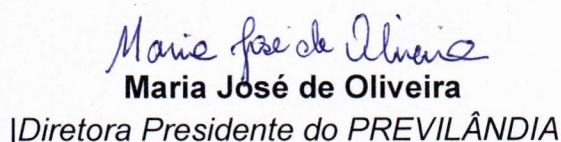 Maria José de Oliveira
Maria José de Oliveira
|Diretora Presidente do PREVILÂNDIA